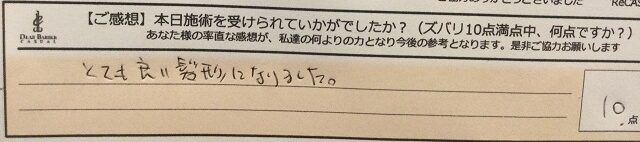 【ご感想】本日施術を受けられていかがでしたか?(ズバリ10点満点中、何点ですか?)
あなた様の率直な感想が、私達の何よりの力となり今後の参考となります。是非ご協力お願いします
DEAR BARBER
CASUAL
とても良い髪形になりました。
10.点